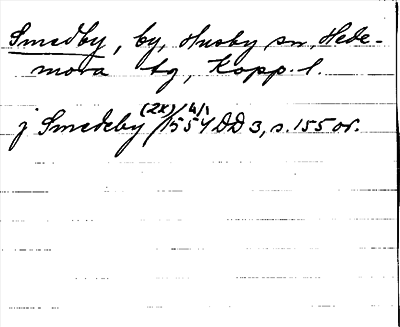 Smedby, by, Husby sn, Hede-
mora tg, Kopp. l.
(2x) /4/1
j Smedeby 1554 DD 3, s. 155 or.